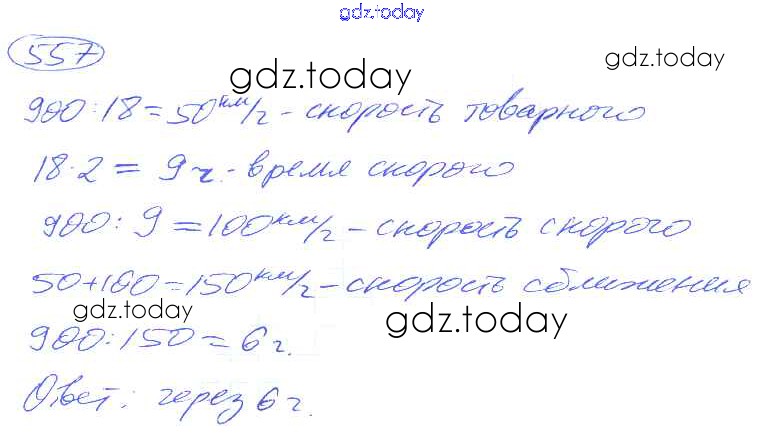 gdz.today
557
gdz.today
gdz.today
900:18=50км/ч - скорость товарного
18·2 = 9 ч. - время скорого
900:9=100км/ч - скорость скорого
50+100=150км/ч - скорость сближения
gdz.today
gdz.today
900:150=6 ч.
Ответ: через 6 ч.